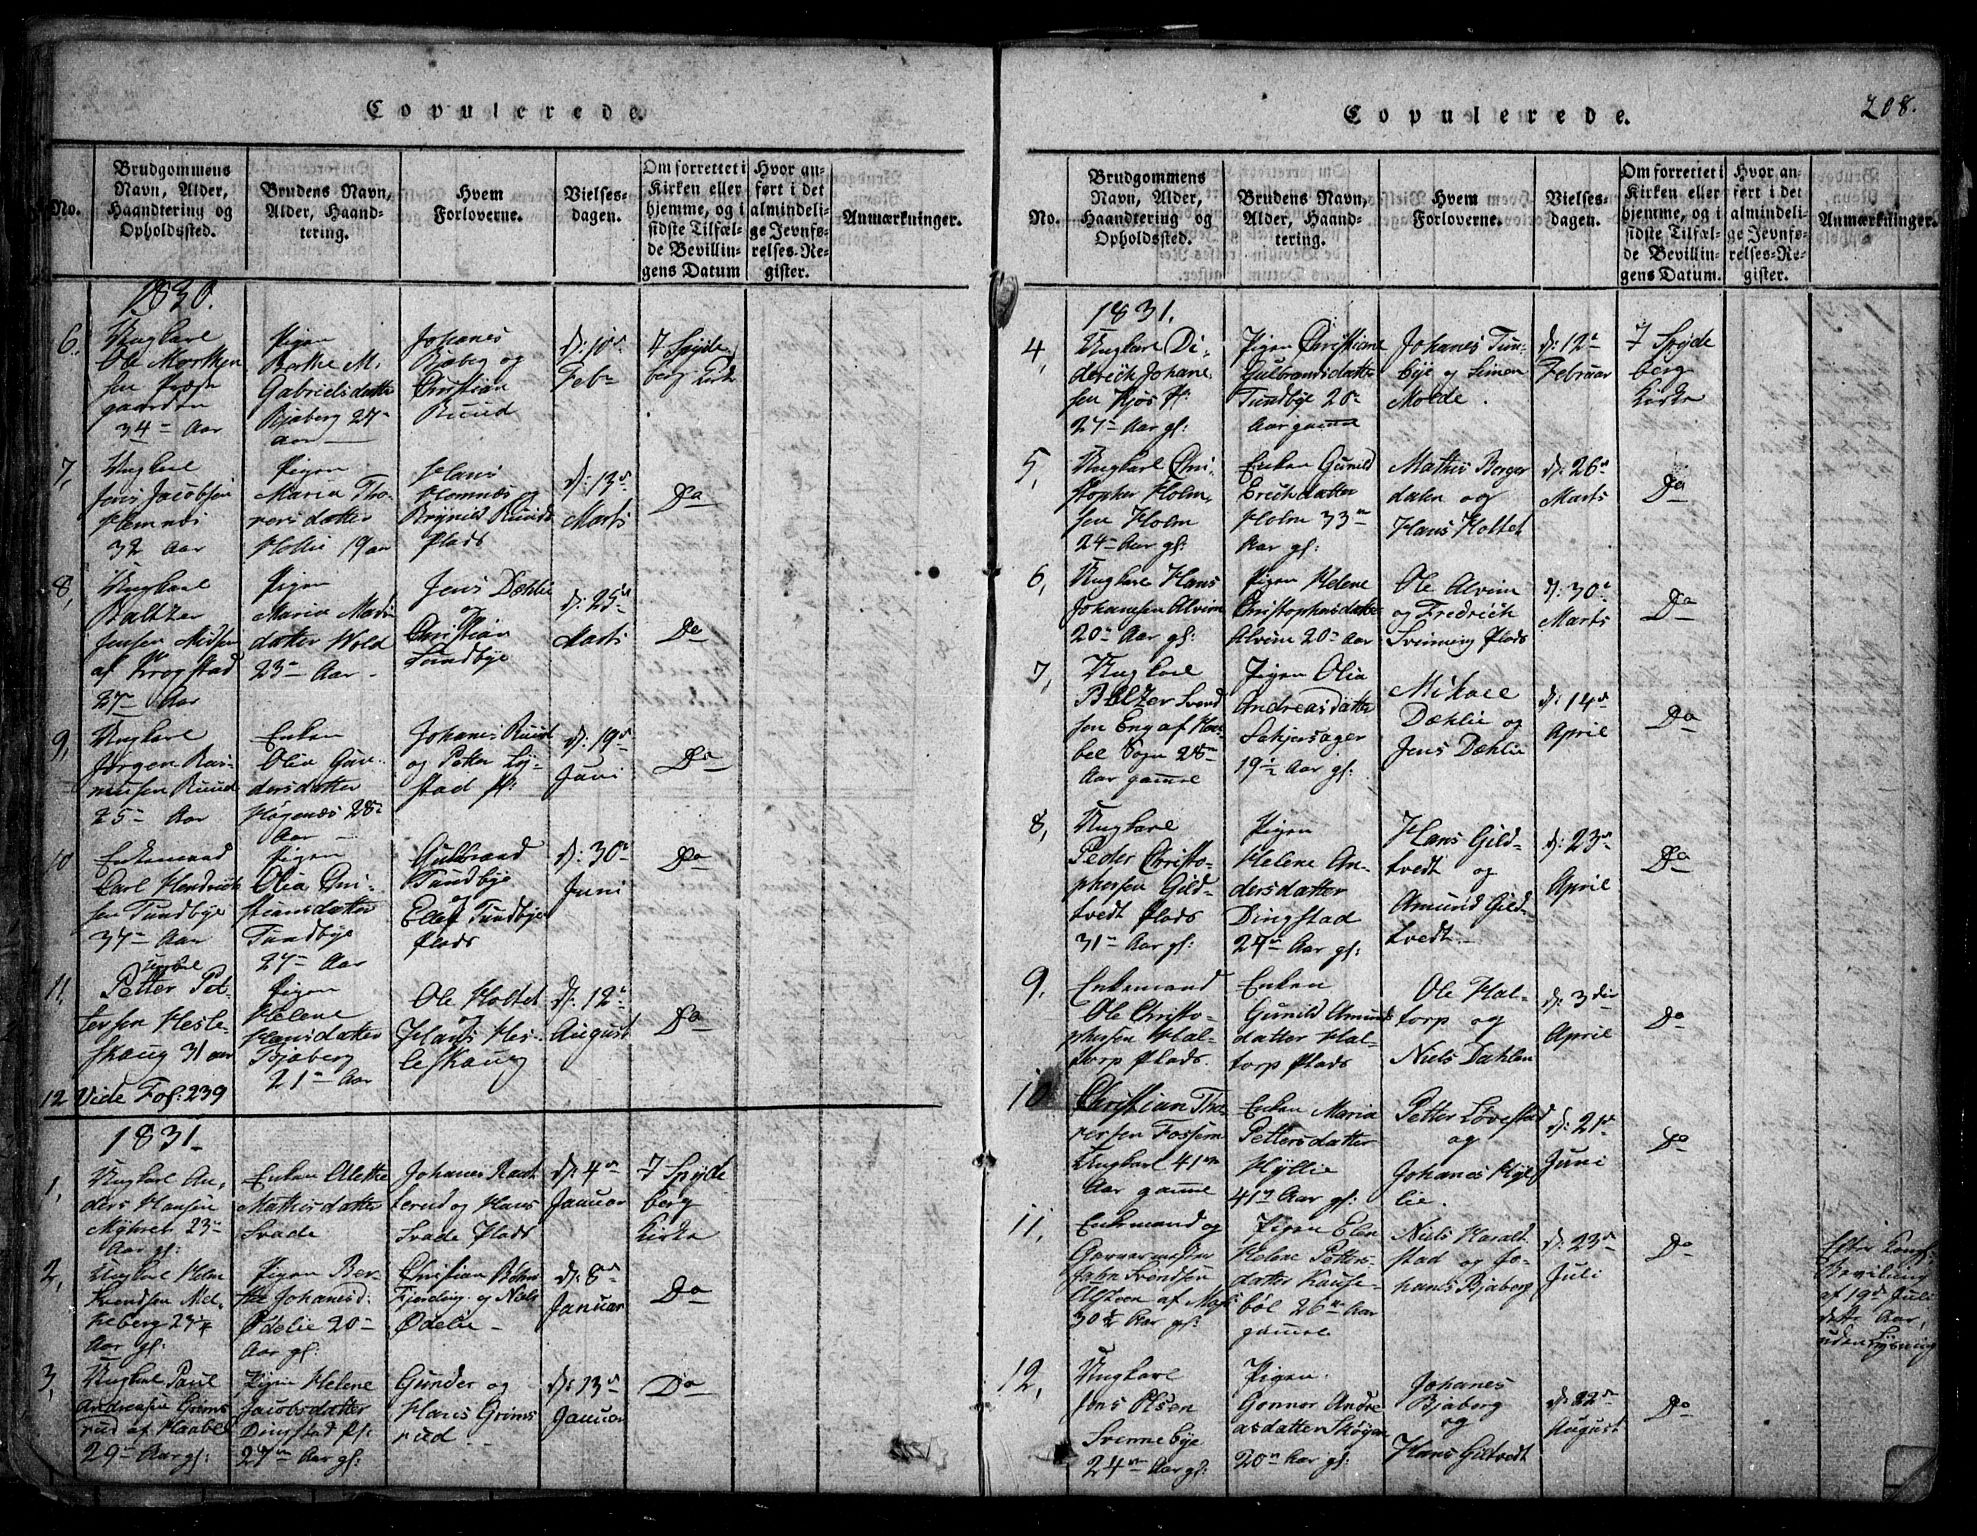 Copulerede.
No.
Brudgommens Navn, Alder, Haandtering og Opholdssted.
Brudens Navn, Alder, Haandtering.
Hvem Forloverne.
Vielsesdagen.
Om forrettet i Kirken eller hjemme, og i sidste Tilfælde Bevillingens Datum
Hvor anført i det almindelige Jevnførelses-Register.
Anmærkninger.
1830.
6.
Ungkarl
Ole Morthen
sen
gaarden
34 Aar
Pigen
Berthe M.
Gabrielsdatter
Bjaberg 24
aar
Johanes
Bjaberg og
Christian
Ruud
d: 10de
Feb
I Spyde
berg Kirke
7,
Ungkarl
Jens Jacobsen
Hemnæs
32 Aar
Pigen
Maria Tho-
rersdatter
Hollie 19 aar
Hans
Hemnæs og
Brynild Ruud
Plads
d: 13de
Marts
Do
8,
Ungkarl
Baltzer
Jensen
af Krogstad
27 Aar
Pigen
Maria
datter Wold
23 Aar
Jens Dæhlie
og
Christian
Tundbye
d: 25de
Marts
Do
9,
Ungkarl
Jørgen Ras-
musen Ruud
25 Aar
Enken
Olia Gun-
dersdatter
Høgenæs 28
Aar
Johanes Ruud
og Petter Ly-
stad Pl:
d: 19de
Juni
Do
10
Enkemand
Carl Hendrich
sen Tundbye
37 Aar
Pigen
Olia Chri-
stiansdatter
Tundbye
27 Aar
Gulbrand
Tundbye
og
Ellef Tundbye
Plads
d: 30te
Juni
Do
11,
Ungkarl
Petter Pet-
tersen Hesle-
skaug 31 aar
Pigen
Helene
Hansdatter
Bjaberg
21 Aar
Ole Holtet
og
Hans Hes-
leskaug
d: 12te
August
Do
12
Vide Fol: 239
1831.
1,
Ungkarl An-
ders Hansen
23
Aar gl:
Enken Alethe
Mathisdatter
Svade
Johanes
og Hans
Svade Plads
d: 4de
Januar
I Spyde
berg
Kirke
2,
Ungkarl
Svendsen Mel-
leberg
Aar gl:
Pigen Ber-
the Johanesd:
Ødelie 20
Aar gl:
Christian
Fjerding og Niels
Ødelie
d: 8de
Januar
Do
3,
Ungkarl Paul
Andreasen Grims
rud af Haabøl
29 Aar gl:
Pigen Helene
Jacobsdatter
Dingstad Pl:
27 Aar gl:
Gunder og
Hans Grims
rud
d: 13de
Januar
Do
208.
Copulerede.
No.
Brudgommens Navn, Alder, Haandtering og Opholdssted.
Brudens Navn, Alder, Haandtering.
Hvem Forloverne.
Vielsesdagen.
Om forrettet i Kirken eller hjemme, og i sidste Tilfælde Bevillingens Datum.
Hvor anført i det almindelige Jevnførelses-Register.
Anmærkninger.
1831.
4,
Ungkarl Di-
derich Johane
sen Kjos Pl:
27 Aar gl:
Pigen Christiane
Gulbrandsdatter
Tundbye 28
Aar gamle
Johanes Tun-
bye og Simen
Molde.
d: 12te
Februar
I Spyde
berg
Kirke
5,
Ungkarl Chri-
stopher Holm-
sen Holm
24 Aar gl:
Enken Gunild
Erichsdatter
Holm 33
Aar gl:
Mathis Berger
dalen og
Hans Holtet
d: 26de
Marts
Do
6,
Ungkarl Hans
Johanesen Alvim
20 Aar gl:
Pigen Helene
Christophersdatter
Alvim 20 Aar
Ole Alvim
og Fredrich
Svinning Plads
d: 30te
Marts
Do
7,
Ungkarl
Baltzer Svend
sen Eng af Haa-
bel Sogn 28
Aar gamle
Pigen Olia
Andreasdatter
19½ Aar gl:
Mikael
Dæhlie og
Jens Dæhlie
d: 14de
April
Do
8,
Ungkarl
Peder Christo-
phersen Gild-
tvedt Plads
31 Aar gl:
Pigen
Helene An-
dersdatter
Dingstad
24 Aar gl:
Hans Gild-
tvedt og
Amund Gild-
tvedt
d: 23de
April
Do
9,
Enkemand
Ole Christo-
phersen Hal-
torp Plads
Enken
Gunild Amunds
datter Hal-
torp Plads
Ole Hal-
torp og
Niels Dahlen
d: 3die
April
Do
10
Christian Tho-
rersen Fossum
Ungkarl 41
Aar gamle
Enken Maria
Pettersdatter
Hyllie
41 Aar gl:
Petter Løvestad
og
Johanes Hyl-
lie.
d: 21de
Juni
Do
11,
Enkemand og
Garvermester
John Svendsen
af Moss
30 Aar gl:
Pigen Elen
Helene Petters-
datter Kause-
bøl 26 Aar
gamle
Niels Harald-
stad og Jo-
hanes Bjaberg
d: 23de
Juli
Do
Efter Kongl:
Bevilling
af 19de Juli
dette Aar,
uden Lysning
12,
Ungkarl
Jens Olsen
Svennebye
24 Aar gl:
Pigen
Gonnor Andre
asdatter
20 Aar gl:
Johanes
Bjaberg
og
Hans Gildtvedt
d: 22de
August
Do